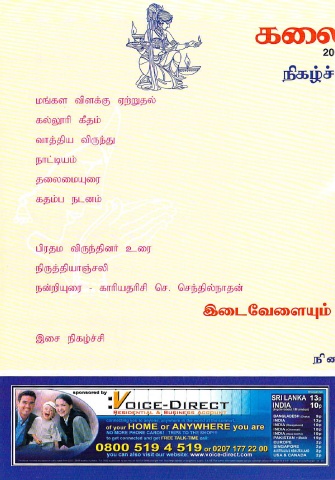 கலை
20
நிகழ்ச்
மங்கள விளக்கு ஏற்றுதல்
கல்லூரி கீதம்
வாத்திய விருந்து
நாட்டியம்
தலைமையுரை
கதம்ப நடனம்
பிரதம விருத்தினர் உரை
நிருத்தியாஞ்சலி
நன்றியுரை - காரியதரிசி செ. செந்தில்நாதன்
இடைவேளையும்
இசை நிகழ்ச்சி
நினை
sponsored by
VOICE-DIRECT
RESIDENTIAL & BUSINESS ACCOUNT
of your HOME or ANYWHERE you are
NO MORE PHONE CARDS! TRIPS TO THE SHOPS!
to get connected and get FREE TALK-TIME call:
0800 519 4 519 or 0207 177 22 00
you can also visit our website: www.voice-direct.com
SRI LANKA 13p
INDIA 10p
BANGLADESH 9p
INDIA
INDIA
INDIA
PAKISTAN
EUROPE 3p
SINGAPORE 3p
USA & CANADA 2p